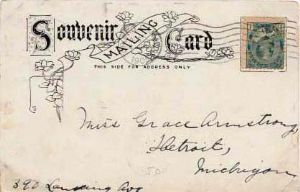 Souvenir
MAILING
Card
THIS SIDE FOR ADDRESS ONLY
Miss Grace Armstrong
Detroit,
Michigan
390 Ave